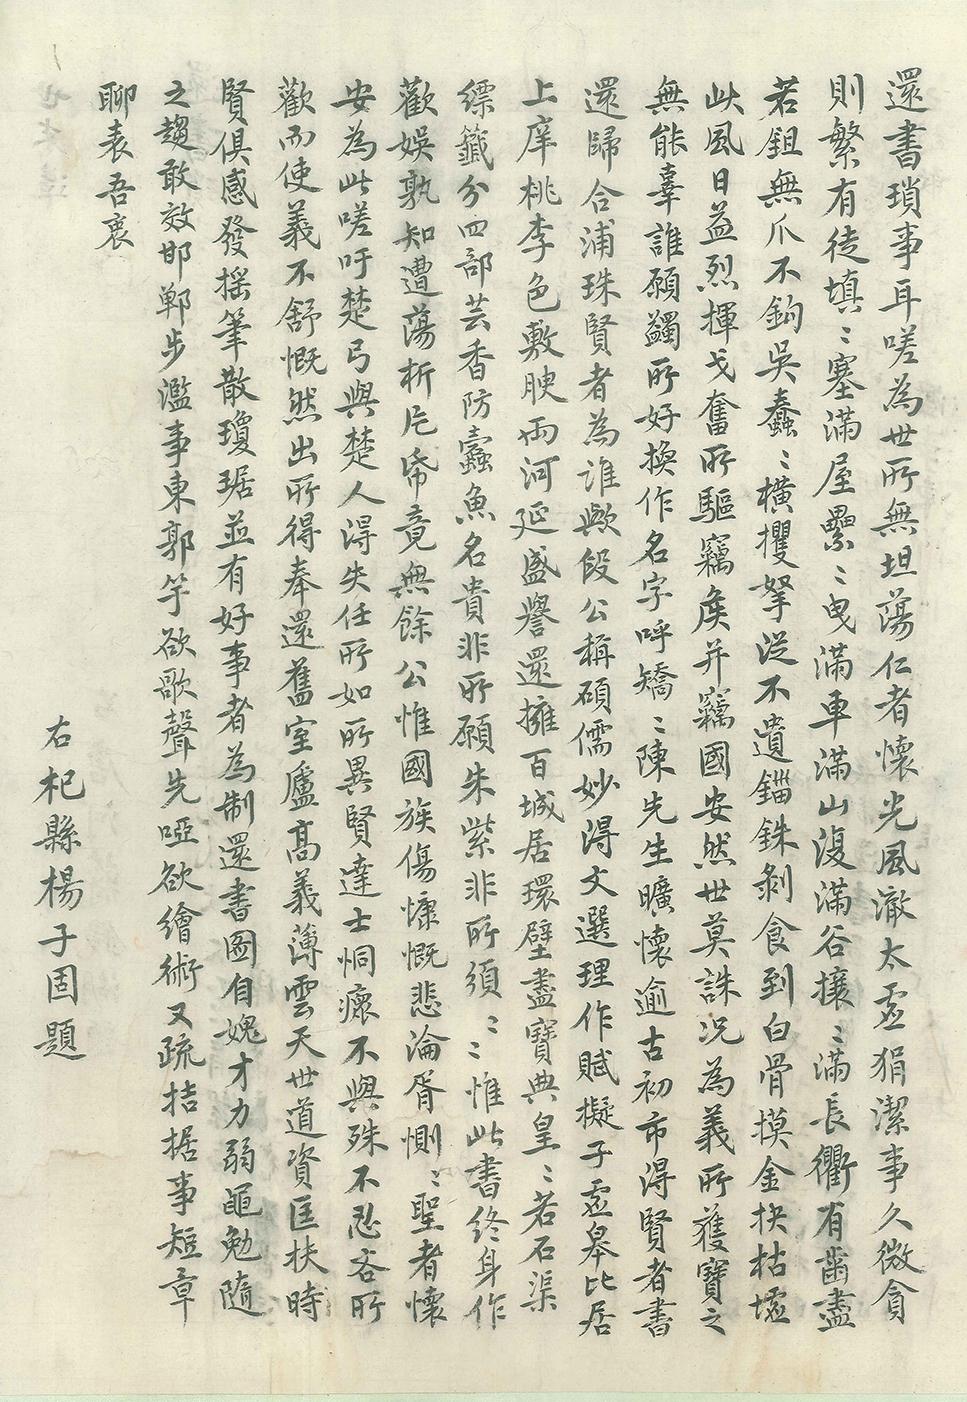 還書瑣事耳嗟為世所無坦蕩仁者懷光風澈太虛狷潔事久微貪
則繁有徒填〻塞滿屋纍〻曳滿車滿山復滿谷攘〻滿長衢有齒盡
若鉏無爪不鉤吳蠢〻橫攫拏從不遺錙銖剝食到白骨摸金抉枯墟
此風日益烈揮戈奮所驅竊矦并竊國安然世莫誅況為義所獲寶之
無能辜誰願蠲所好換作名字呼矯〻陳先生曠懷逾古初市得賢者書
還歸合浦珠賢者為誰歟段公稱碩儒妙得文選理作賦擬子虛皋比居
上庠桃李色敷腴兩河延盛譽還擁百城居環壁盡寶典皇〻若石渠
縹籤分四部芸香防蠹魚名貴非所願朱紫非所須〻惟此書終身作
歡娛孰知遭蕩析片帋竟無餘公惟國族傷慷慨悲淪胥惻〻聖者懷
安為此嗟吁楚弓與楚人得失任所如所異賢達士恫瘝不與殊不忍吝所
歡而使義不舒慨然出所得奉還舊室廬高義薄雲天世道資匡扶時
賢俱感發搖筆散瓊琚並有好事者為制還書圖自媿才力弱黽勉隨
之趨敢效邯鄲步濫事東郭竽欲歌聲先啞欲繪術又疏拮据事短章
聊表吾衷
右杞縣楊子固題